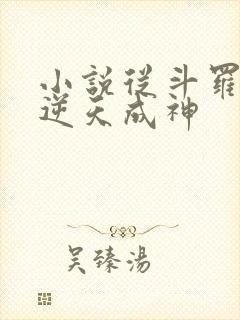 小說從斗羅
逆天成神
吴臻湯